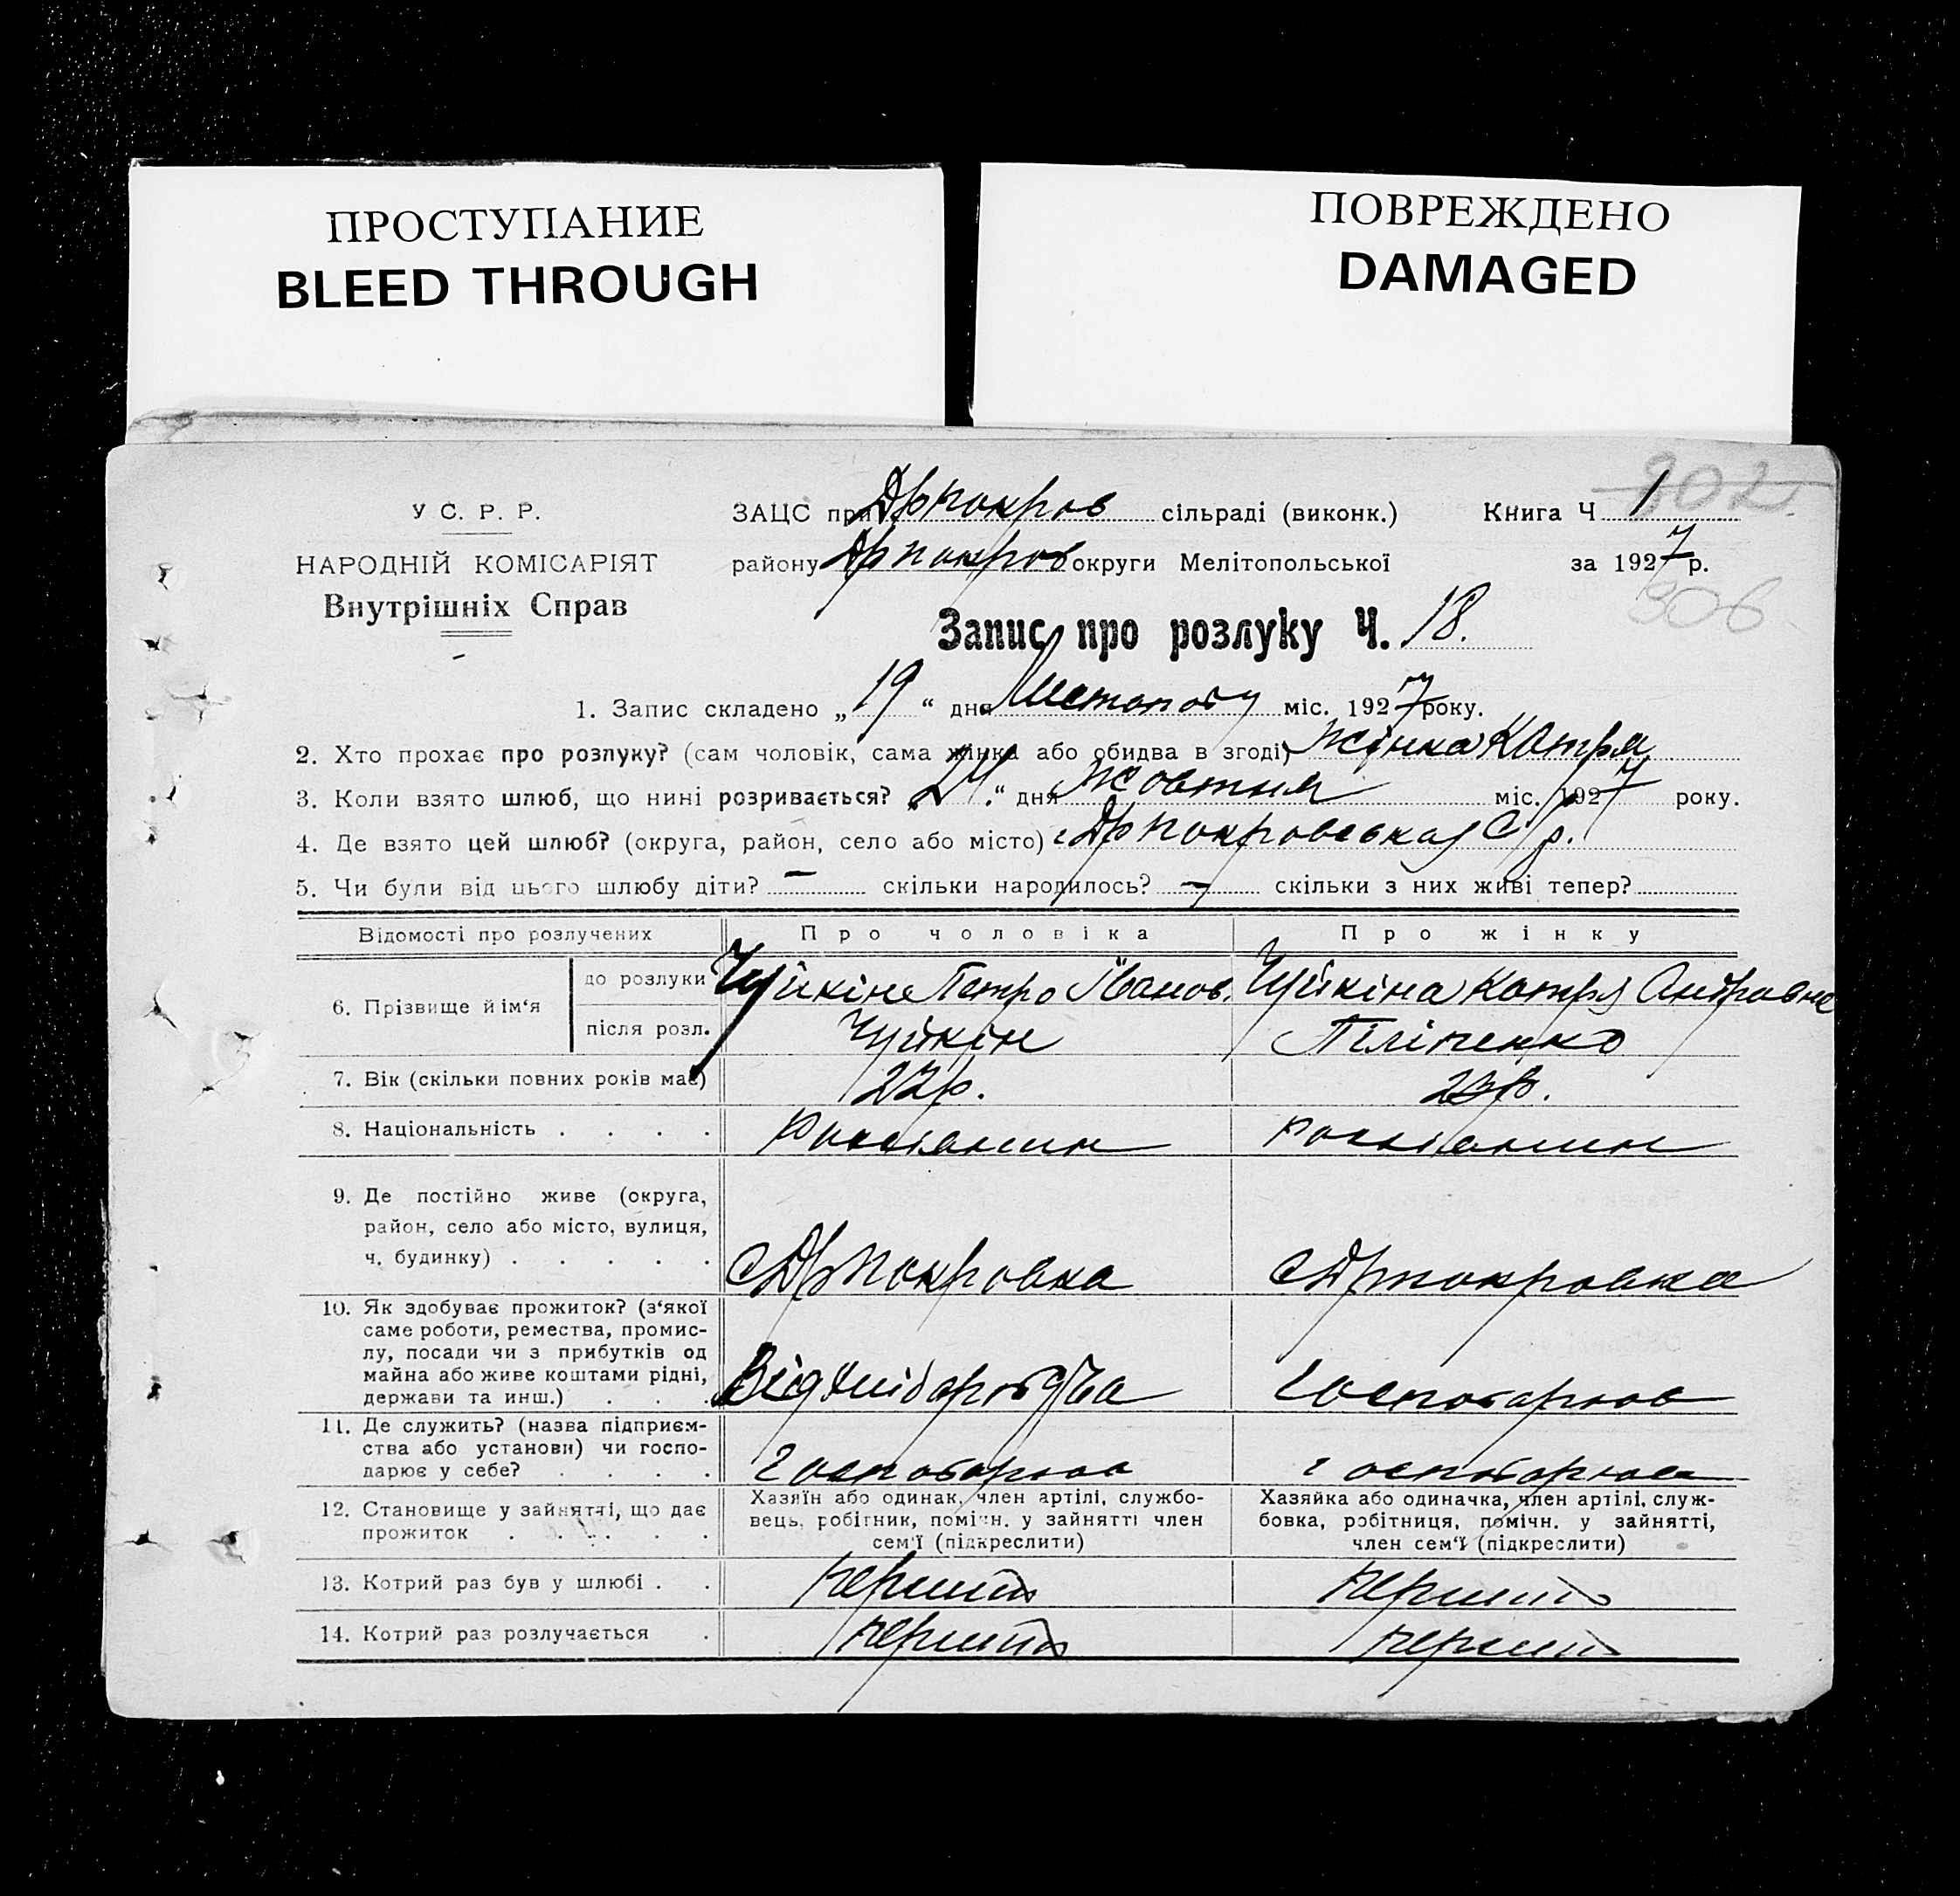 ПРОСТУПАНИЕ
BLEED THROUGH
ПОВРЕЖДЕНО
DAMAGED
302
У С. Р. Р.
НАРОДНІЙ КОМІСАРІЯТ
Внутрішніх Справ
ЗАЦС при Др Покров сільраді (виконк.) Книга Ч 1
району Др Покров округи Мелітопольської за 1927 р.
306
Запис про розлуку Ч. 18.
1. Запис складено „19“ дня Листопаду міс. 1927 року.
2. Хто прохає про розлуку? (сам чоловік, сама жінка або обидва в згоді) Жінка Катря
3. Коли взято шлюб, що нині розривається? „24“ дня Жовтня міс. 1927 року.
4. Де взято цей шлюб? (округа, район, село або місто) Др Покровськая С/р.
5. Чи були від цього шлюбу діти? — скільки народилось? — скільки з них живі тепер?
Відомості про розлучених Про чоловіка Про жінку
6. Прізвище й ім‘я до розлуки Чуйкін Петро Іванов. Чуйкіна Катря Андравна
після розл. Чуйкін Піліпенко
7. Вік (скільки повних років має) 22 р. 23 р.
8. Національність . . . . россіанин россіанин
9. Де постійно живе (округа,
район, село або місто, вулиця,
ч. будинку) . . . . . с Др Покровка с Др Покровка
10. Як здобуває прожиток? (з‘якої
саме роботи, ремества, промис-
лу, посади чи з прибутків од
майна або живе коштами рідні,
держави та инш.) . . . Від хліборобства господарює
11. Де служить? (назва підприєм-
ства або установи) чи госпо-
дарює у себе? . . . . господарює господарює
12. Становище у зайнятті, що дає
прожиток . . . . .
Хазяїн або одинак, член артілі, службо-
вець, робітник, помічн. у зайнятті член
сем‘ї (підкреслити)
Хазяйка або одиначка, член артілі, служ-
бовка, робітниця, помічн. у зайнятті,
член сем‘ї (підкреслити)
13. Котрий раз був у шлюбі . . перший перший
14. Котрий раз розлучається . перший перший